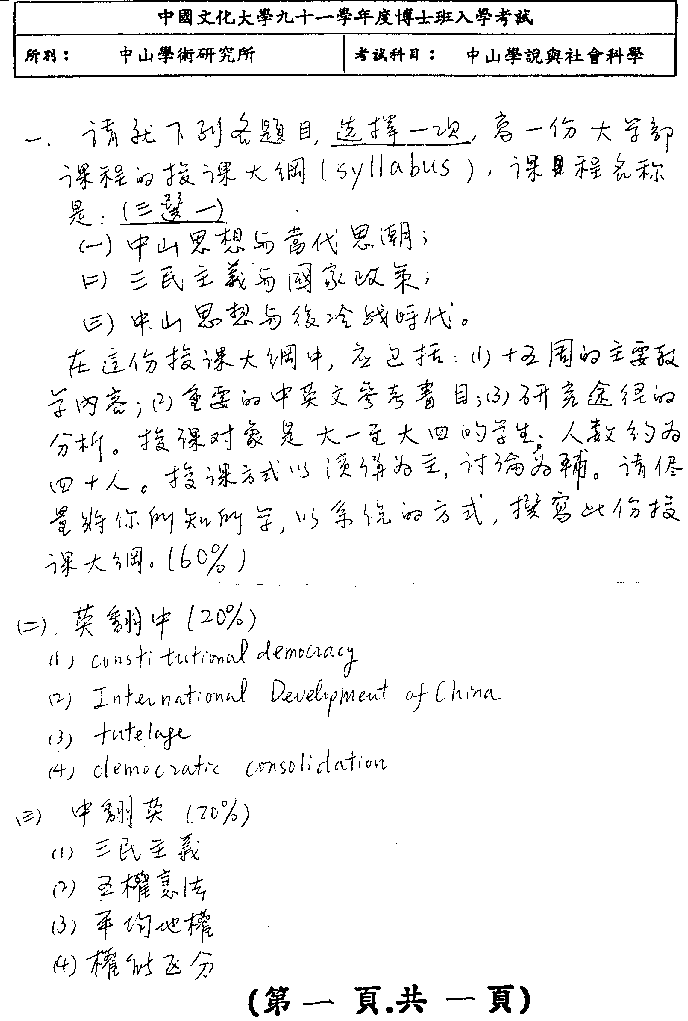 中國文化大學九十一學年度博士班入學考試
所別： 中山學術研究所 考試科目： 中山學說與社會科學
一. 请就下列各題目, 选擇一项, 寫一份大学部
课程的授课大綱(syllabus), 课程名称
是: (三選一)
(一) 中山思想与當代思潮;
(二) 三民主義与國家政策;
(三) 中山思想与後冷战時代。
在這份授课大綱中, 应包括: (1) 十五周的主要教
学內容; (2) 重要的中英文參考書目; (3) 研究途徑的
分析。授課对象是大一至大四的学生; 人数约为
四十人。授课方式以演講为主, 討論为輔。请侭
量將你所知所学, 以系统的方式, 撰寫此份授
课大綱。(60%)
(二). 英翻中 (20%)
(1) constitutional democracy
(2) International Development of China
(3) tutelage
(4) democratic consolidation
(三) 中翻英 (20%)
(1) 三民主義
(2) 五權憲法
(3) 平均地權
(4) 權能区分
(第 一 頁.共 一 頁)